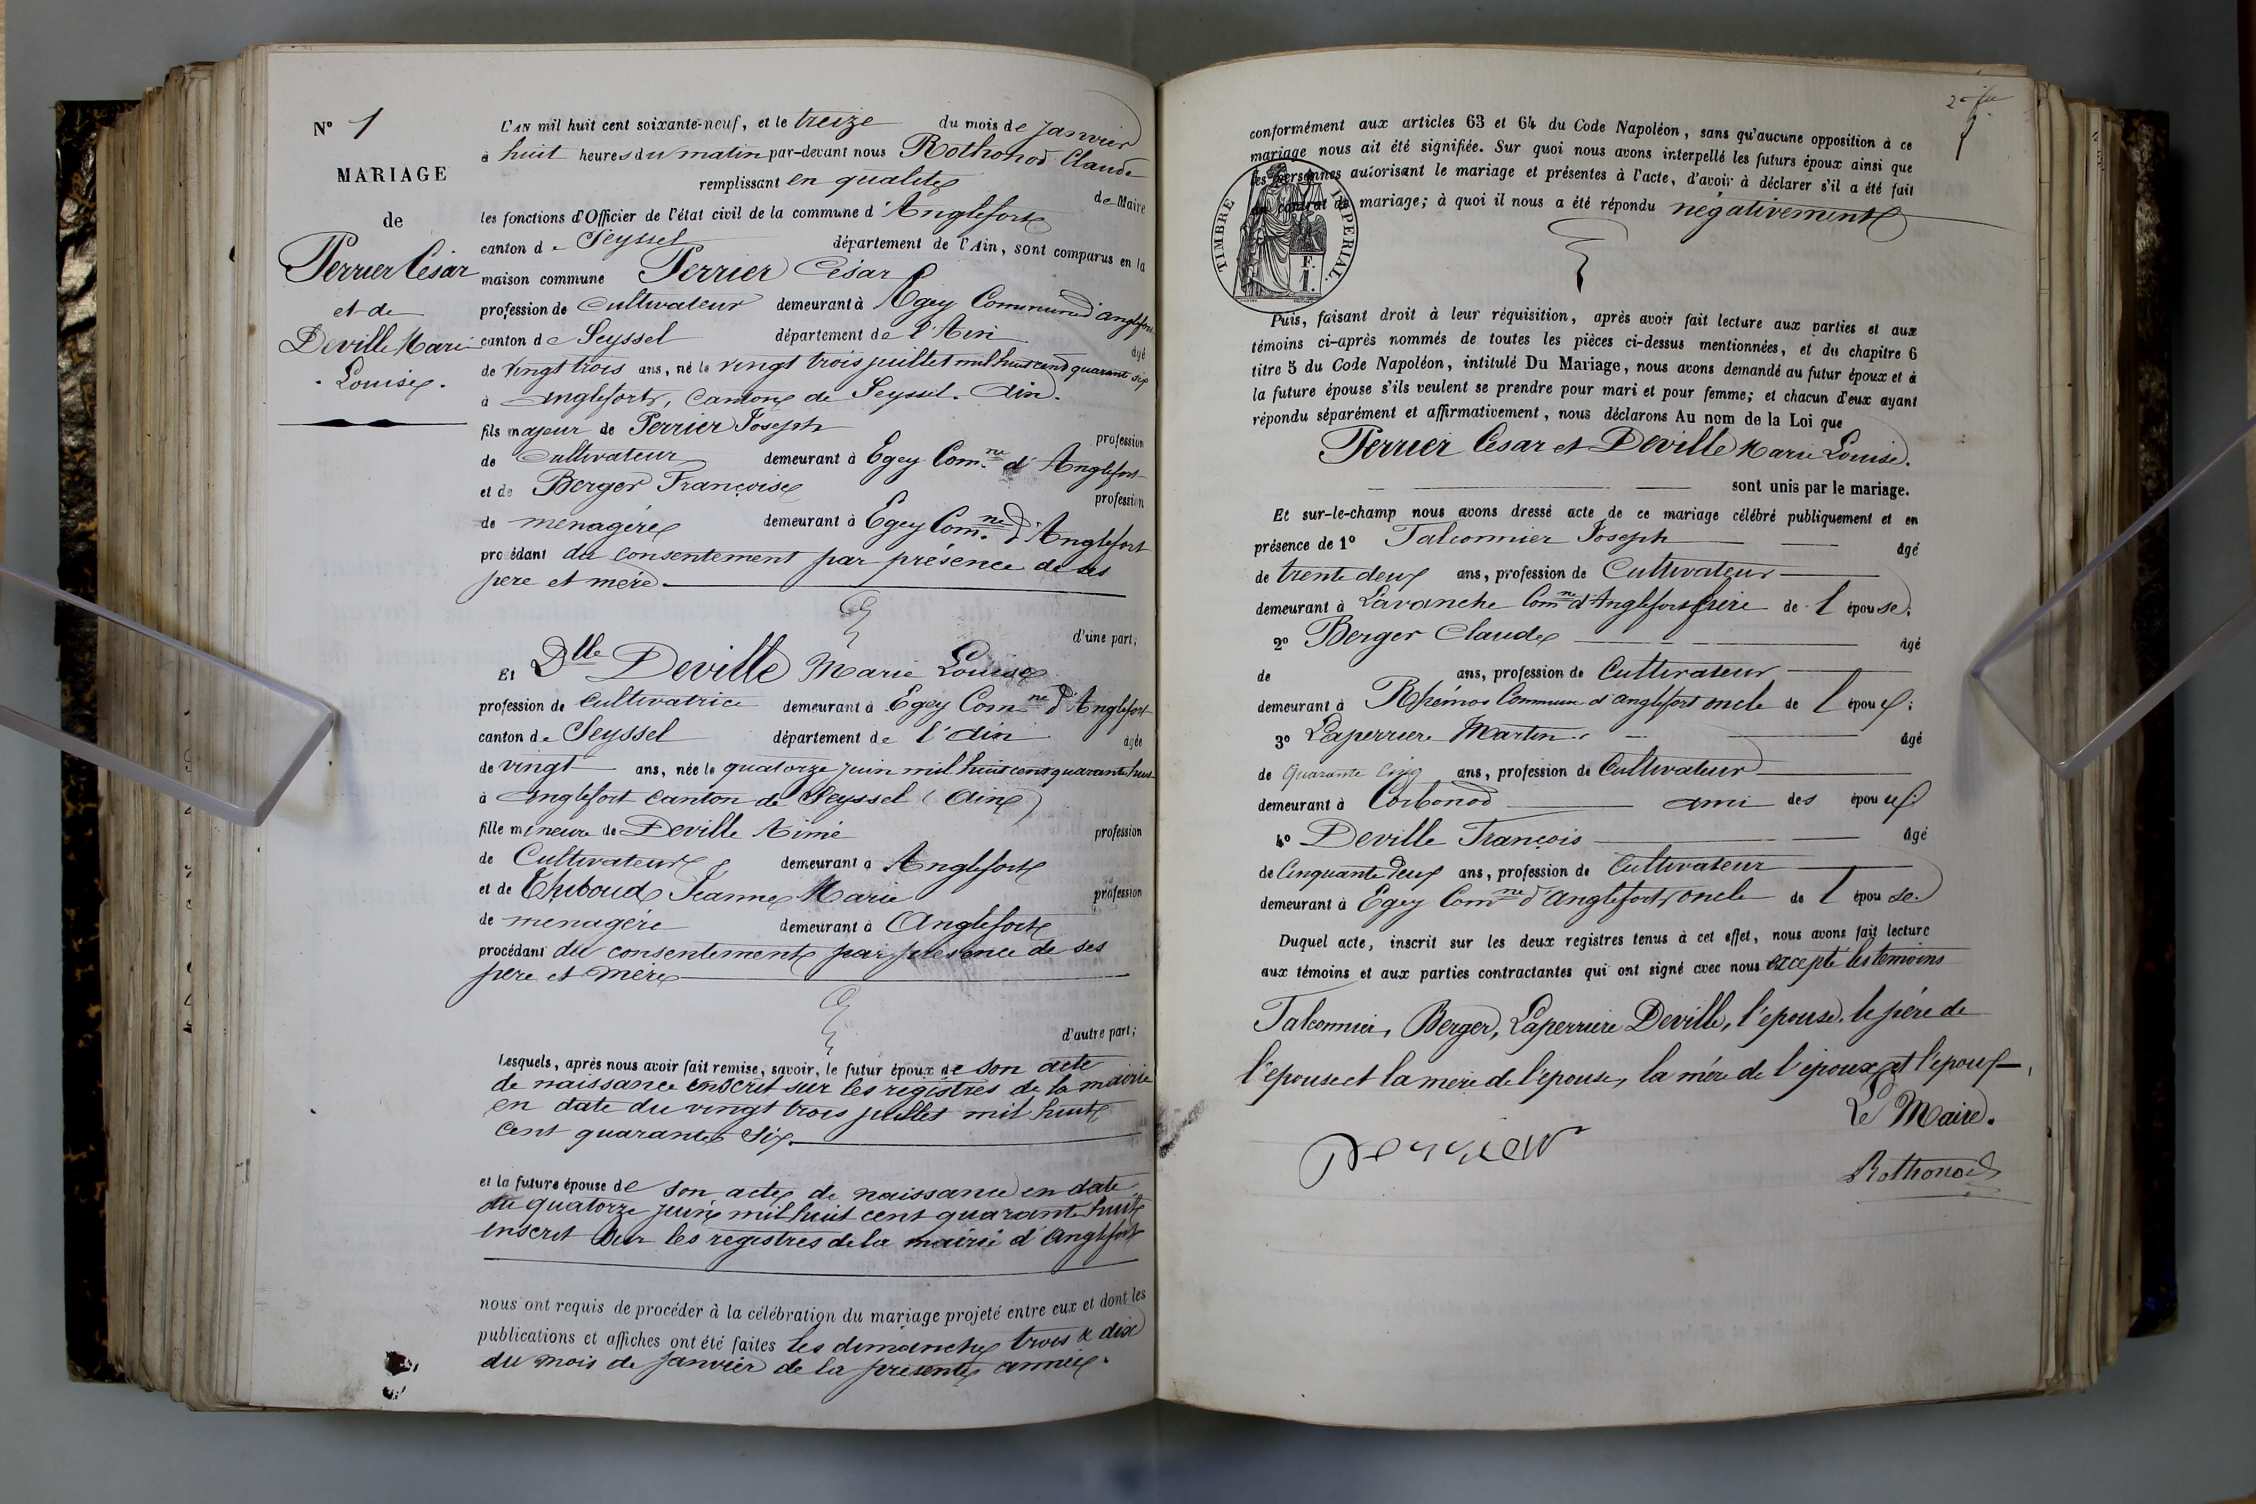 N° 1
MARIAGE
de
Perrier César
et de
Deville Marie
Louise.
L'AN mil huit cent soixante-neuf, et le treize du mois de Janvier
à huit heures du matin par-devant nous Rothonod Claude
remplissant en qualité de Maire
les fonctions d'Officier de l'état civil de la commune d'Anglefort
canton de Seyssel département de l'Ain, sont comparus en la
maison commune Perrier César
profession de cultivateur demeurant à Egey Commune d'anglefort
canton de Seyssel département de l'Ain âgé
de vingt trois ans, né le vingt trois juillet mil huit cent quarante six
à anglefort, Canton de Seyssel. Ain.
fils majeur de Perrier Joseph profession
de Cultivateur demeurant à Egey Com.ne d'Anglefort
et de Berger Françoise profession
de menagère demeurant à Egey Com.ne d'Anglefort
procédant du consentement par présence de ses
pere et mère.
d'une part;
Et Dlle Deville Marie Louise
profession de Cultivatrice demeurant à Egey Comne d'Anglefort
canton de Seyssel département de l'Ain âgée
de vingt ans, née le quatorze juin mil huit cent quarante huit
à Anglefort Canton de Seyssel (Ain)
fille mineure de Deville Aimé profession
de Cultivateur demeurant à Anglefort
et de Thiboud Jeanne Marie profession
de menagère demeurant à Anglefort
procédant du consentement par présence de ses
pere et mère
d'autre part;
Lesquels, après nous avoir fait remise, savoir, le futur époux de son acte
de naissance inscrit sur les registres de la mairie
en date du vingt trois juillet mil huit
cent quarante six.
et la future épouse de son acte de naissance en date
du quatorze juin mil huit cent quarante huit
inscrit sur les registres de la mairie d'Anglefort
nous ont requis de procéder à la célébration du mariage projeté entre eux et dont les
publications et affiches ont été faites les dimanches trois & dix
du mois de janvier de la présente année.
conformément aux articles 63 et 64 du Code Napoléon, sans qu'aucune opposition à ce
mariage nous ait été signifiée. Sur quoi nous avons interpellé les futurs époux ainsi que
les personnes autorisant le mariage et présentes à l'acte, d'avoir à déclarer s'il a été fait
un contrat de mariage; à quoi il nous a été répondu négativement
TIMBRE IMPERIAL.
1 F.
Puis, faisant droit à leur réquisition, après avoir fait lecture aux parties et aux
témoins ci-après nommés de toutes les pièces ci-dessus mentionnées, et du chapitre 6
titre 5 du Code Napoléon, intitulé Du Mariage, nous avons demandé au futur époux et à
la future épouse s'ils veulent se prendre pour mari et pour femme; et chacun d'eux ayant
répondu séparément et affirmativement, nous déclarons Au nom de la Loi que
Perrier César et Deville Marie Louise.
sont unis par le mariage.
Et sur-le-champ nous avons dressé acte de ce mariage célébré publiquement et en
présence de 1° Talconnier Joseph âgé
de trente deux ans, profession de Cultivateur
demeurant à Lavanche Comne d'Anglefort frère de l'épouse;
2° Berger Claude âgé
de ans, profession de Cultivateur
demeurant à Rhémos Commune d'anglefort oncle de l'époux;
3° Laperriere Martin âgé
de Quarante Cinq ans, profession de Cultivateur
demeurant à Corbonod ami des époux
4° Deville François âgé
de Cinquante deux ans, profession de Cultivateur
demeurant à Egey Comne d'anglefort, oncle de l'épouse
Duquel acte, inscrit sur les deux registres tenus à cet effet, nous avons fait lecture
aux témoins et aux parties contractantes qui ont signé avec nous excepté les témoins
Talconnier, Berger, Laperriere Deville, l'épouse, le père de
l'épouse et la mere de l'épouse, la mère de l'époux, et l'époux
Le Maire.
Perrier
Rothonod